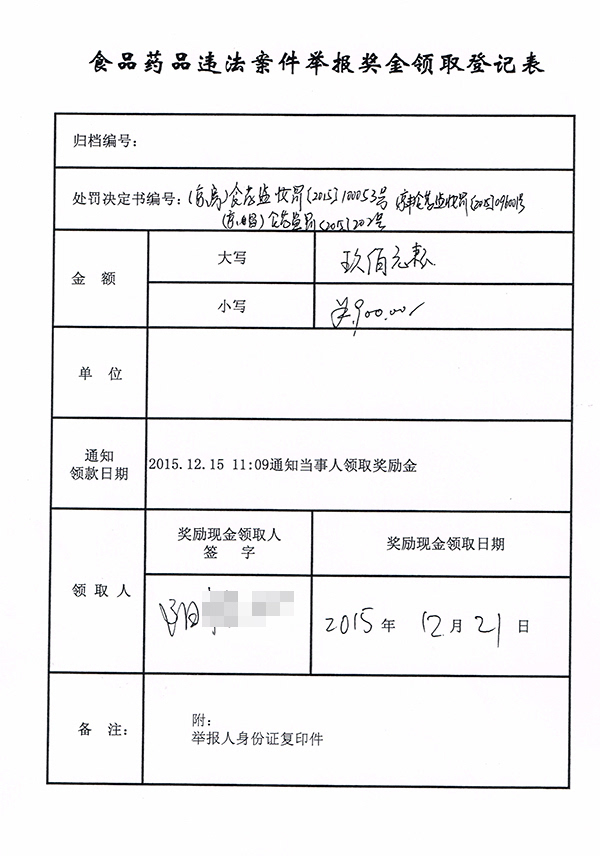 食品药品违法案件举报奖金领取登记表
归档编号:
处罚决定书编号: 食药监 罚〔2015〕100053号 食药监 罚〔2015〕09001号
食药监罚〔2015〕202号
金 额
大写
玖佰元整
小写
¥900.00
单 位
通知
领款日期
2015.12.15 11:09通知当事人领取奖励金
领取人
奖励现金领取人
签 字
奖励现金领取日期
2015年 12月 21日
备 注:
附:
举报人身份证复印件